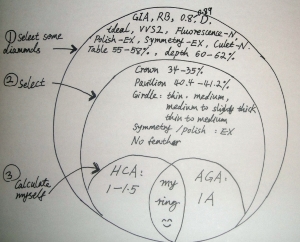 GIA, RB, 0.8~0.89, D.
① Select some diamonds
ideal, VVS2, Fluorescence-N
Polish-EX, Symmetry-EX, Culet-N.
Table 55-58%, depth 60-62%
② Select
Crown 34-35%
Pavilion 40.4-41.2%
Girdle: thin, medium,
medium to slightly thick
thin to medium
Symmetry /polish : EX
No feather
③ Calculate myself
HCA:
1-1.5
my
ring
AGA:
1A